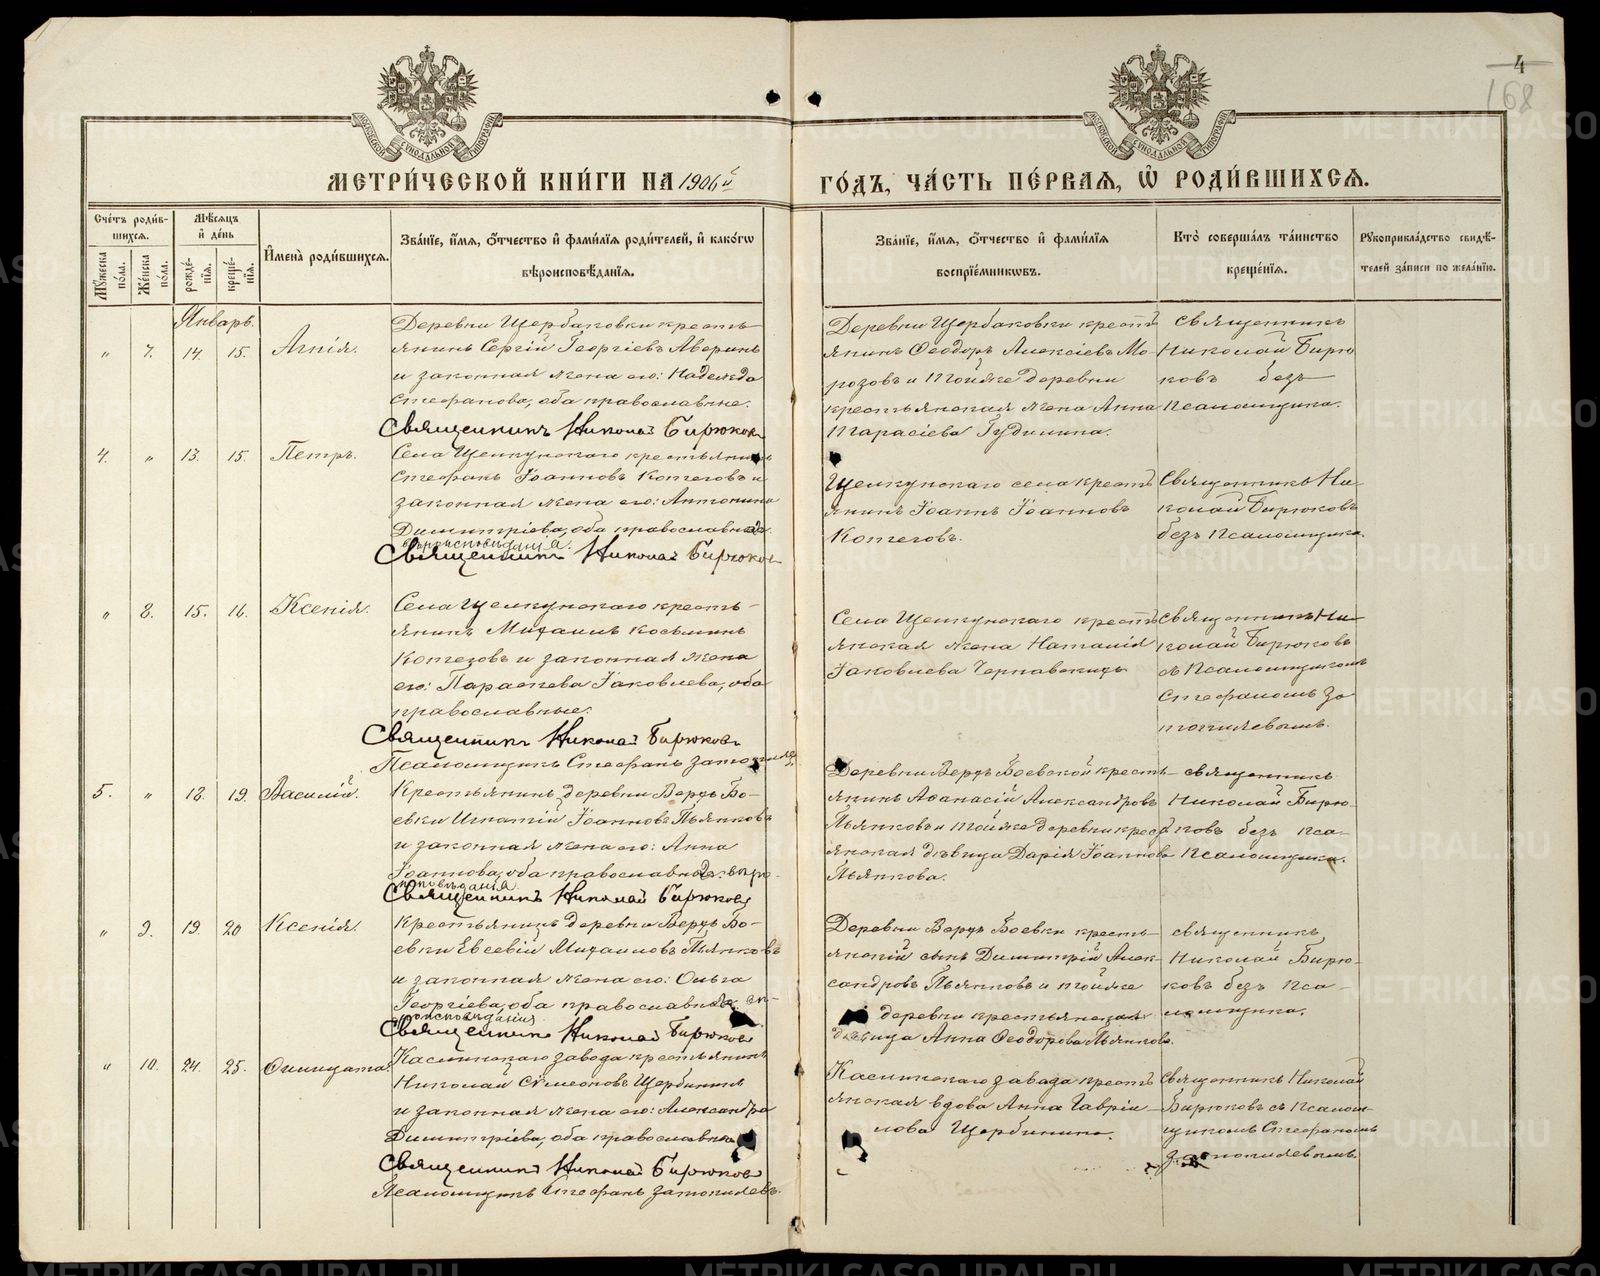 4
168
МОСКОВСКОЙ СѴНОДАЛЬНОЙ ТИПОГРАФІИ
МОСКОВСКОЙ СѴНОДАЛЬНОЙ ТИПОГРАФІИ
МЕТРИ́ЧЕСКОЙ КНИ́ГИ НА 1906й
ГО́ДЪ, ЧА́СТЬ ПЕ́РВАѦ, Ѿ РОДИ́ВШИХСѦ.
Сче́тъ роди́в-
шихсѧ.
Мꙋ́жеска по́ла.
Же́нска по́ла.
Мѣ́сѧцъ
и҆ де́нь
рожде́-
нїѧ.
креще́-
нїѧ.
И҆мена̀ роди́вшихсѧ.
Зва́нїе, и҆́мѧ, ѻ҆́тчество и҆ фами́лїѧ роди́телей, и҆ како́гѡ
вѣроисповѣ́данїѧ.
Зва́нїе, и҆́мѧ, ѻ҆́тчество и҆ фами́лїѧ
воспрїе́мникѡвъ.
Кто̀ соверша́лъ та́инство
креще́нїѧ.
Рꙋкоприкла́дство свидѣ́-
телей за́писи по жела́нїю.
Январь.
" 7. 14. 15. Агнія.
Деревни Щербаковки кресть-
янинъ Сергій Георгіевъ Аверинъ
и законная жена его: Надежда
Стефанова, оба православные.
Священникъ Николай Бирюковъ
Деревни Щербаковки крестъ
янинъ Ѳеодоръ Алексіевъ Мо-
розовъ и тойже деревни
крестьянская жена Анна
Тарасіева
Священникъ
Николай Бирю
ковъ безъ
псаломщика.
4. " 13. 15. Петръ.
Села Щелкунскаго крестьянинъ
Стефанъ Іоанновъ Котеговъ и
законная жена его: Антонина
Димитріева, оба православнаго
вѣроисповѣданія.
Священникъ Николай Бирюковъ
Щелкунскаго села крестъ
янинъ Іоаннъ Іоанновъ
Котеговъ.
Священникъ Ни-
колай Бирюковъ
безъ псаломщика.
" 8. 15. 16. Ксенія.
Села Щелкунскаго кресть-
янинъ Михаилъ Косьминъ
Котеговъ и законная жена
его: Параскева Іаковлева, оба
православные.
Священникъ Николай Бирюковъ
Псаломщикъ Стефанъ Затопляев
Села Щелкунскаго крестъ
янская жена Наталія
Іаковлева
Священникъ Ни-
колай Бирюковъ
съ псаломщикомъ
Стефаномъ За
топляевымъ.
5. " 18. 19. Василій.
Крестьянинъ деревни Верхъ Бо-
евки Игнатій Іоанновъ Пьянковъ
и законная жена его: Анна
Іоаннова, оба православнаго вѣро-
исповѣданія
Священникъ Николай Бирюковъ
Деревни Верхъ Боевской кресть-
янинъ Аѳанасій Александровъ
Пьянковъ и тойже деревни крест
янская дѣвица Дарія Іоаннова
Пьянкова.
священникъ
Николай Бирю-
ковъ безъ пса-
ломщика.
" 9. 19. 20 Ксенія.
Крестьянинъ деревни Верхъ Бо-
евки Евсевій Михаиловъ Пьянковъ
и законная жена его: Ольга
Георгіева, оба православнаго вѣ-
роисповѣданія
Священникъ Николай Бирюковъ
Деревни Верхъ Боевки кресть-
янскій сынъ Димитрій Алек-
сандровъ Пьянковъ и тойже
деревни крестьянская
дѣвица Анна Ѳеодорова Пьянкова.
священникъ
Николай Бирю-
ковъ безъ пса-
ломщика.
" 10. 24. 25.
Каслинскаго завода крестьянинъ
Николай Сѵмеоновъ Щербининъ
и законная жена его: Александра
Димитріева, оба православные
Священникъ Николай Бирюковъ
Псаломщикъ Стефанъ Затопляевъ.
Каслинскаго завода крестъ
янская вдова Анна Гавріи-
лова Щербинина.
Священникъ Николай
Бирюковъ съ псалом-
щикомъ Стефаномъ
Затопляевымъ.
METRIKI.GASO-URAL.RU